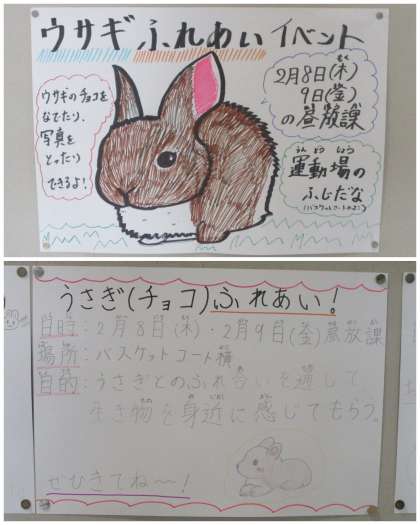 ウサギ ふれあい イベント
ウサギのチョコを
なでたり、
写真を
とったり
できるよ!
2月8日(木)
9日(金)
の昼放課
運動場の
ふじだな
(バスケットコートのよこ)
うさぎ(チョコ)ふれあい!
日時:2月8日(木)・2月9日(金)昼放課
場所:バスケットコート横
目的:うさぎとのふれ合いを通して
生き物を身近に感じてもらう。
ぜひきてね〜!